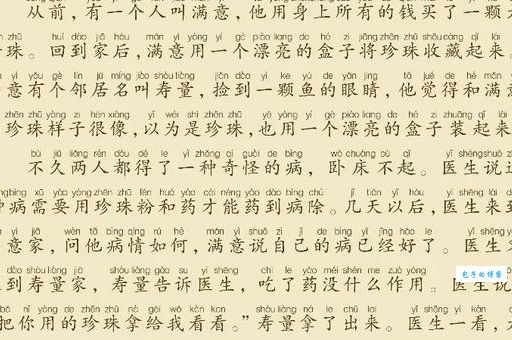 从前，有一个人叫满意，他用身上所有的钱买了一颗
zhū huí dào jiā hòu mǎn yì yòng yí gè piào liang de hé zi jiāng zhēn zhū shōu cáng qǐ lái
珠。回到家后，满意用一个漂亮的盒子将珍珠收藏起来。
yì yǒu gè lín jū míng jiào shòu liàng jiǎn dào yì kē yú de yǎn jing tā jué de hé mǎn
意有个邻居名叫寿量，捡到一颗鱼的眼睛，他觉得和满
zhēn zhū yàng zi hěn xiàng yǐ wéi shì zhēn zhū yě yòng yí gè piào liang de hé zi zhuāng qǐ lái
珍珠样子很像，以为是珍珠，也用一个漂亮的盒子装起来
bù jiǔ liǎng rén dōu dé le yì zhǒng qí guài de bìng wò chuáng bù qǐ yī shēng shuō
不久两人都得了一种奇怪的病，卧床不起。医生说这
bìng xū yào yòng zhēn zhū fěn huó yào cái néng yào dào bìng chú jǐ tiān yǐ hòu yī shēng lái dào
种病需要用珍珠粉和药才能药到病除。几天以后，医生来到
yì jiā wèn tā bìng qíng rú hé mǎn yì shuō zì jǐ de bìng yǐ jīng hǎo le yī shēng
意家，问他病情如何，满意说自己的病已经好了。医生又
dào shòu liàng jiā shòu liàng gào su yī shēng chī le yào méi shén me zuò yòng yī shēng shuō
到寿量家，寿量告诉医生，吃了药没什么作用。医生说
包子的博客
bǎ nǐ yòng de zhēn zhū ná gěi wǒ kàn kan shòu liàng ná le chū lái yī shēng yí kàn
把你用的珍珠拿给我看看。”寿量拿了出来。医生一看，